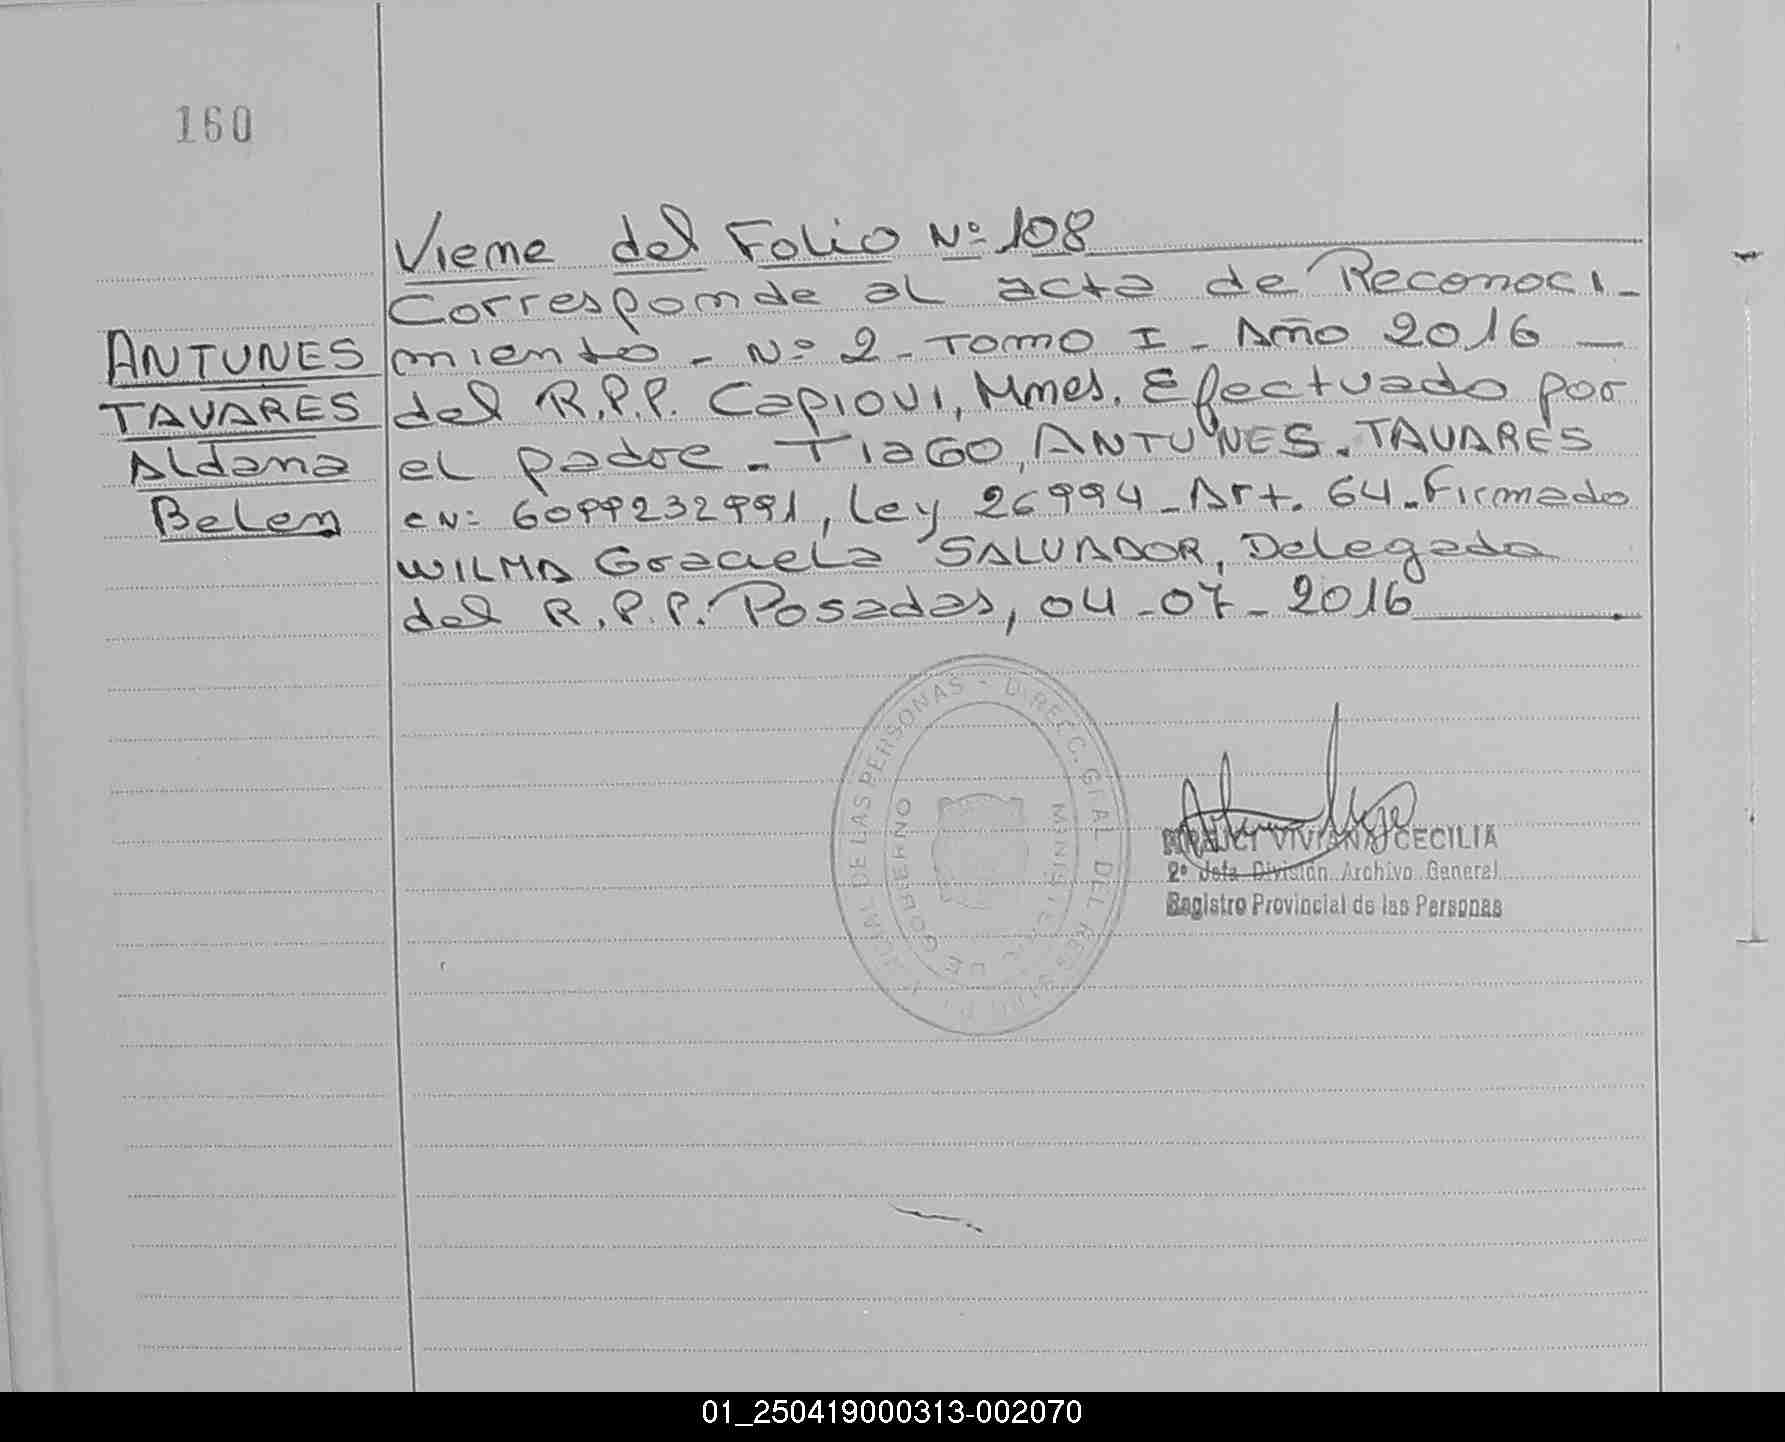 160
Viene del Folio Nº 108
Corresponde al acta de Reconoci-
miento - Nº 2 - Tomo I - Año 2016 -
del R.P.P. Capiovi, Mnes. Efectuado por
el padre - Tiago, ANTUNES - TAVARES
CN: 6099232991, Ley 26994 - Art. 64 - Firmado
WILMA Graciela SALVADOR, Delegada
del R.P.P. Posadas, 04-07-2016
ANTUNES
TAVARES
Aldana
Belen
DIREC. GRAL DEL REGISTRO
DE LAS PERSONAS
MINISTERIO DE GOBIERNO
VIVIANA CECILIA
2º Jefa División Archivo General
Registro Provincial de las Personas
01_250419000313-002070